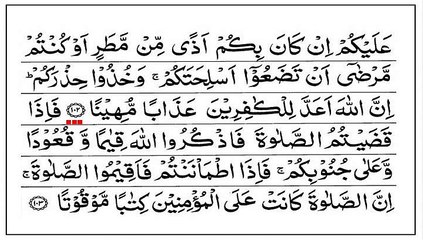 عَلَيْكُمْ اِنْ كَانَ بِكُمْ اَذًى مِّنْ مَّطَرٍ اَوْ كُنْتُمْ
مَّرْضٰٓى اَنْ تَضَعُوْٓا اَسْلِحَتَكُمْ ۚ وَخُذُوْا حِذْرَكُمْ ؕ
اِنَّ اللّٰهَ اَعَدَّ لِلْكٰفِرِيْنَ عَذَابًا مُّهِيْنًا ﴿۱۰۲﴾ فَاِذَا
قَضَيْتُمُ الصَّلٰوةَ فَاذْكُرُوا اللّٰهَ قِيٰمًا وَّ قُعُوْدًا
وَّعَلٰى جُنُوْبِكُمْ ۚ فَاِذَا اطْمَاْنَنْتُمْ فَاَقِيْمُوا الصَّلٰوةَ ۚ
اِنَّ الصَّلٰوةَ كَانَتْ عَلَى الْمُؤْمِنِيْنَ كِتٰبًا مَّوْقُوْتًا ﴿۱۰۳﴾